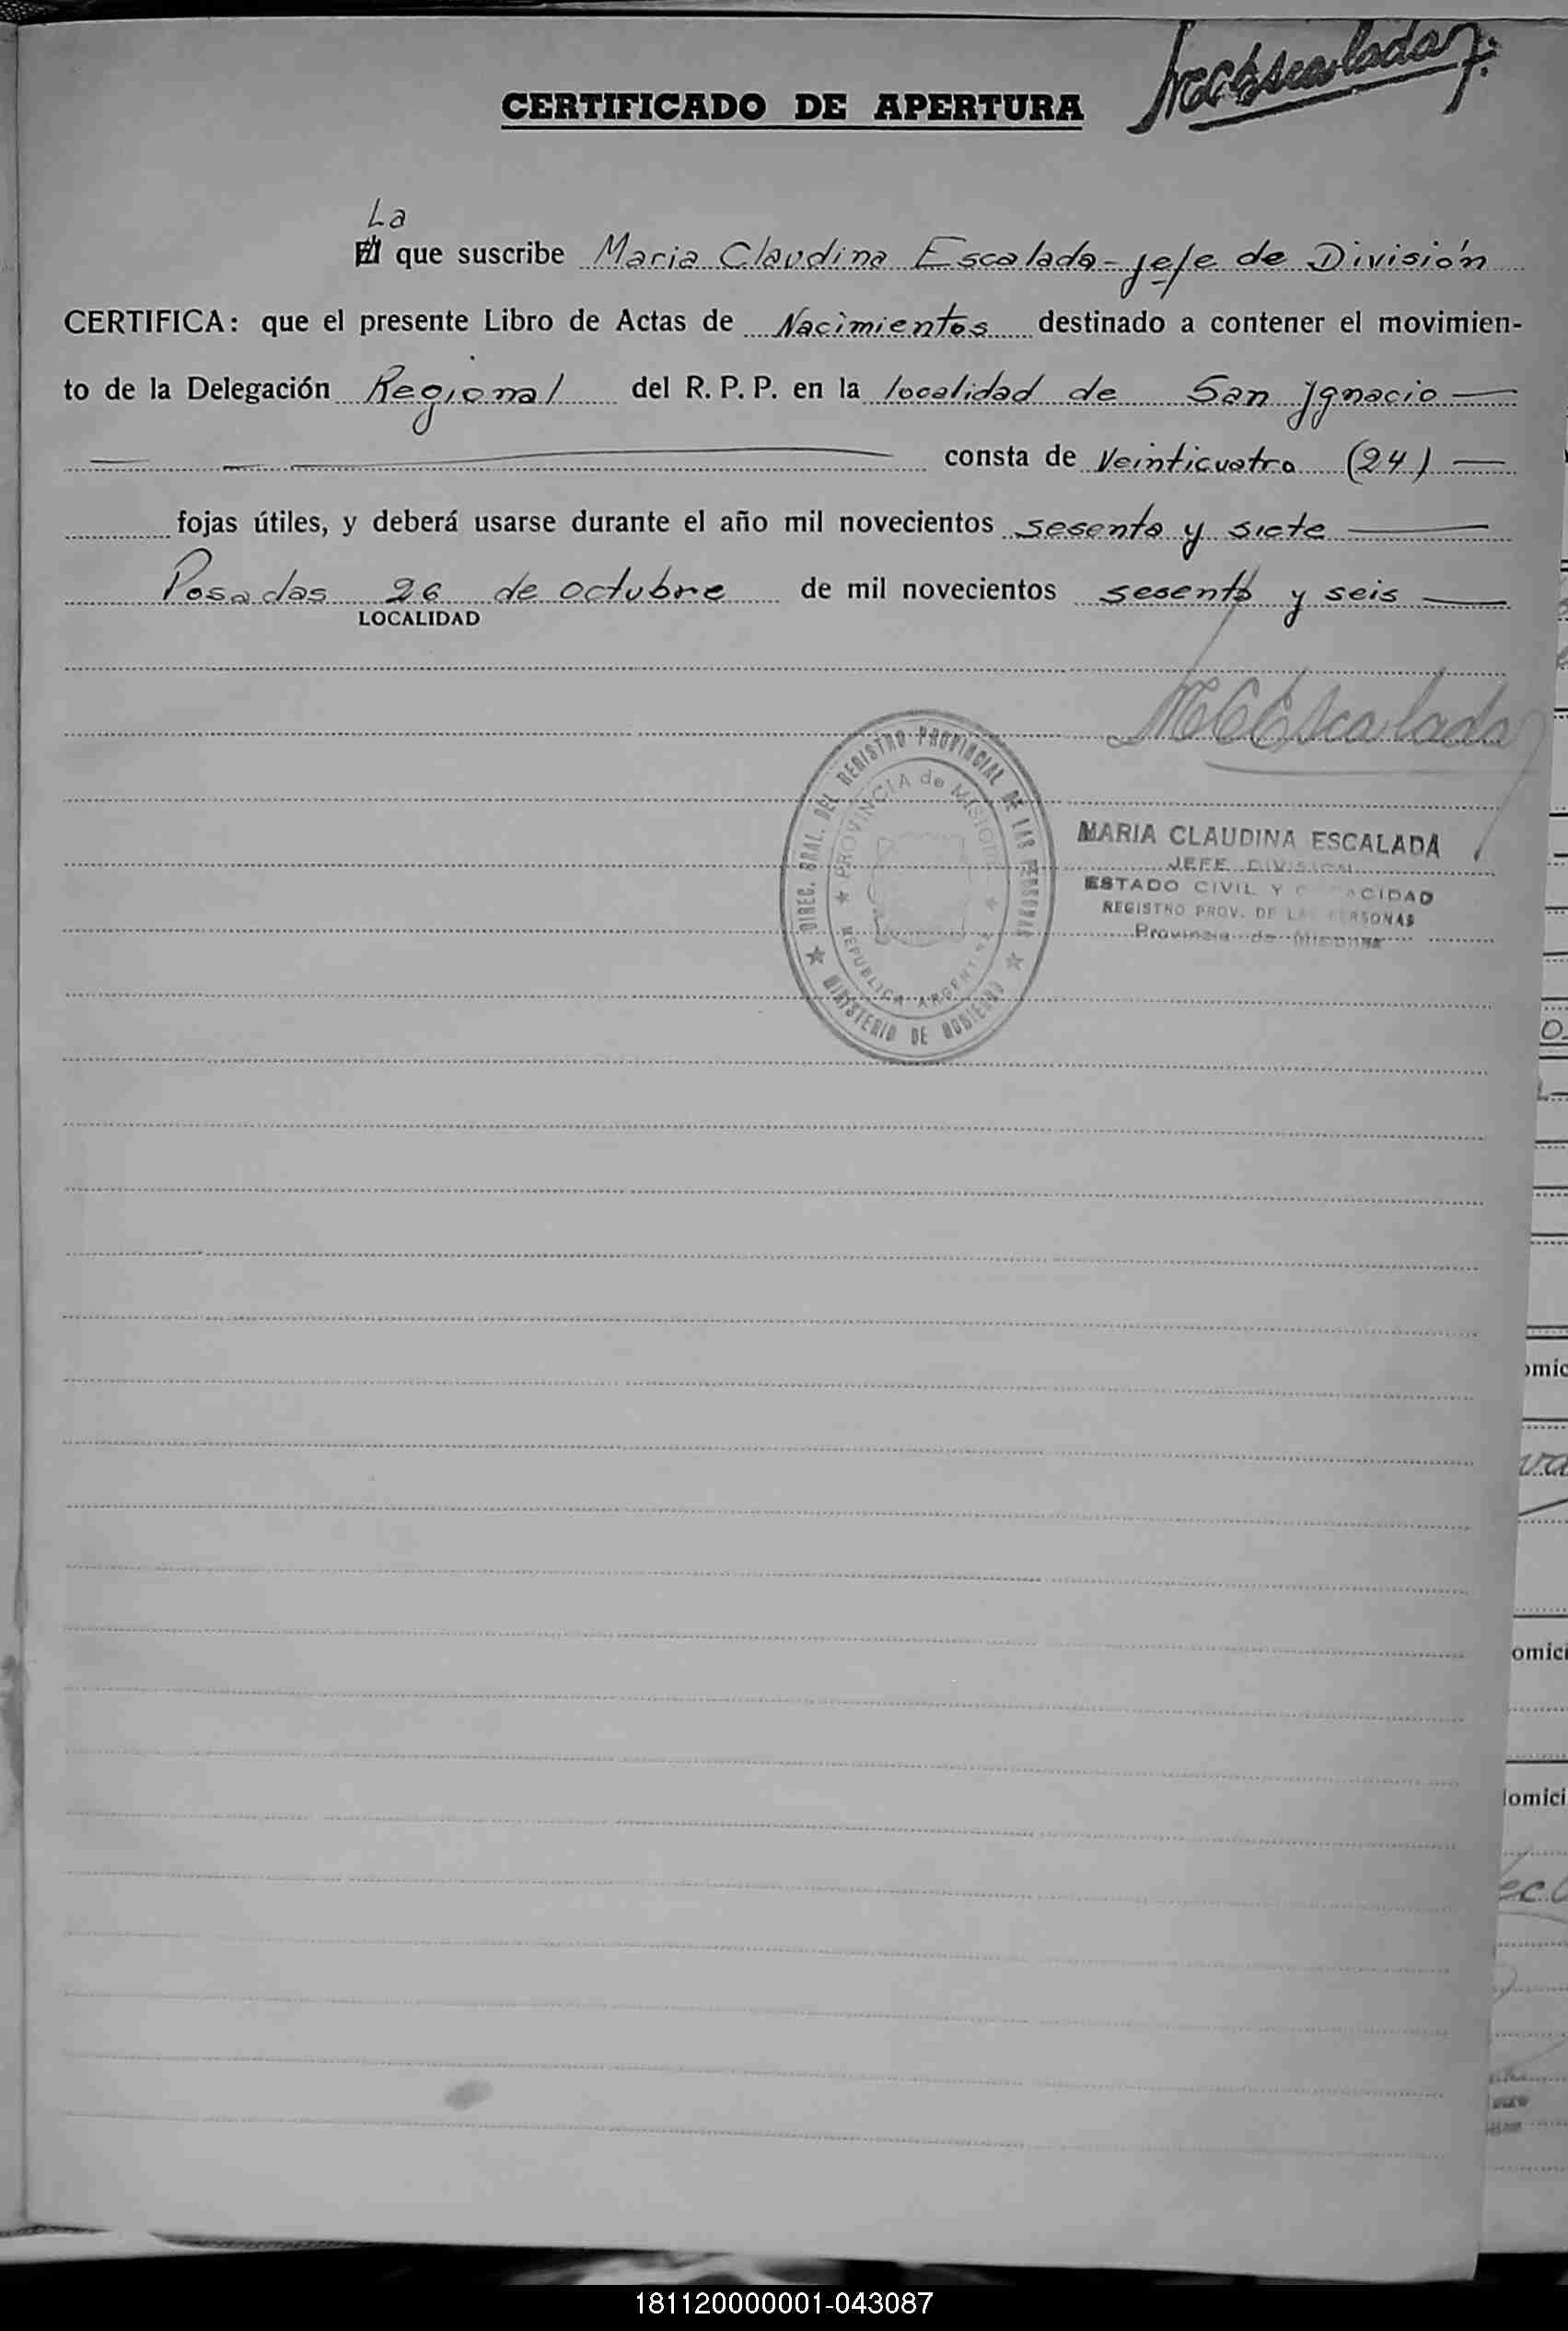 MCEscalada
CERTIFICADO DE APERTURA
La
El que suscribe Maria Claudina Escalada - jefe de División
CERTIFICA: que el presente Libro de Actas de Nacimientos destinado a contener el movimien-
to de la Delegación Regional del R. P. P. en la localidad de San Ygnacio —
consta de Veinticuatro (24) —
fojas útiles, y deberá usarse durante el año mil novecientos sesenta y siete —
Posadas 26 de octubre de mil novecientos sesenta y seis —
LOCALIDAD
MCEscalada
DIREC. GRAL. DEL REGISTRO PROVINCIAL DE LAS PERSONAS
PROVINCIA de MISIONES
REPUBLICA ARGENTINA
MINISTERIO DE GOBIERNO
MARIA CLAUDINA ESCALADA
JEFE DIVISION
ESTADO CIVIL Y CAPACIDAD
REGISTRO PROV. DE LAS PERSONAS
Provincia de Misiones
omic
omici
omici
181120000001-043087